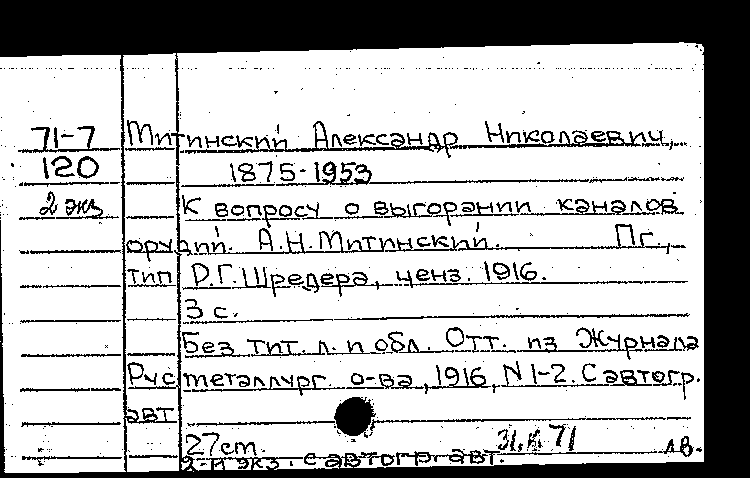 71-7 Митинский Александр Николаевич,
120 1875-1953
2 экз К вопросу о выгорании каналов
орудий. А.Н.Митинский. Пг.,
тип Р.Г.Шредера, ценз. 1916.
3 с.
Без тит. л. и обл. Отт. из Журнала
Рус металлург. о-ва, 1916, N 1-2. С автогр.
авт
27см. 71 лв.
2-й экз. с автогр. авт.